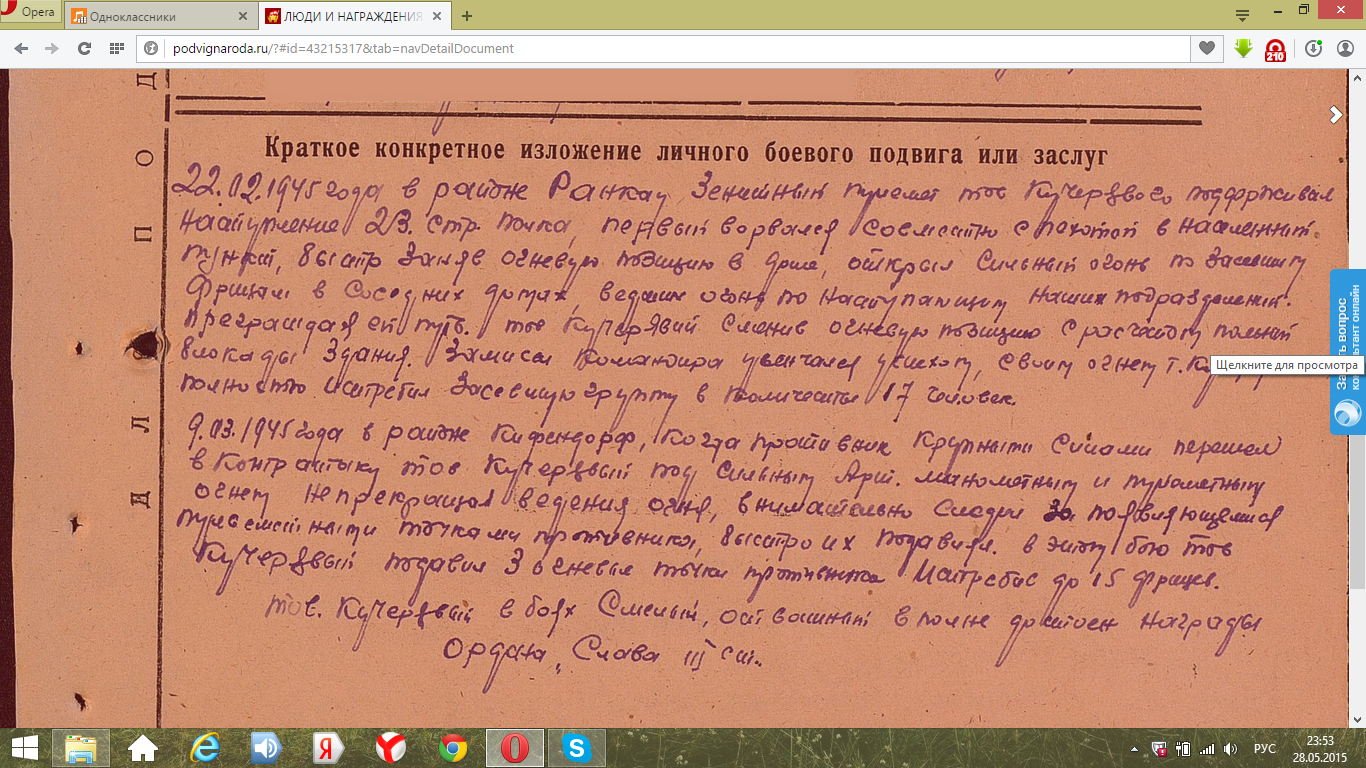 Opera
Одноклассники
ЛЮДИ И НАГРАЖДЕНИЯ
podvignaroda.ru/?#id=43215317&tab=navDetailDocument
210
Д
О
П
Л
И
Краткое конкретное изложение личного боевого подвига или заслуг
22.02.1945 года в районе Ранкау Зенитный пулемет тов Кучерявого поддерживал
наступление 213. стр. полка, первый ворвался совместно с пехотой в населенный
пункт, быстро заняв огневую позицию в доме, открыл сильный огонь по засевшим
фрицам в соседних домах, ведших огонь по наступающим наших подразделений.
преграждая ей путь. тов Кучерявий сменив огневую позицию с расчетом полной
блокады здания. Замысел командира увенчался успехом, своим огнем т.
полностью истребил засевшую группу в количестве 17 человек.
9.03.1945 года в районе Кифендорф, когда противник крупными силами перешел
в контратаку тов Кучерявый под сильным Арт. минометным и пулеметным
огнем непрекращая ведения огня, внимательно следил за появляющемися
пулеметными точками противника, быстро их подавлял. в этом бою тов
Кучерявый подавил 3 огневые точки противника истребив до 15 фрицев.
тов. Кучерявый в боях смелый, отважный вполне достоен награды
Ордена „Слава III ст.
Щелкните для просмотра
РУС
23:53
28.05.2015